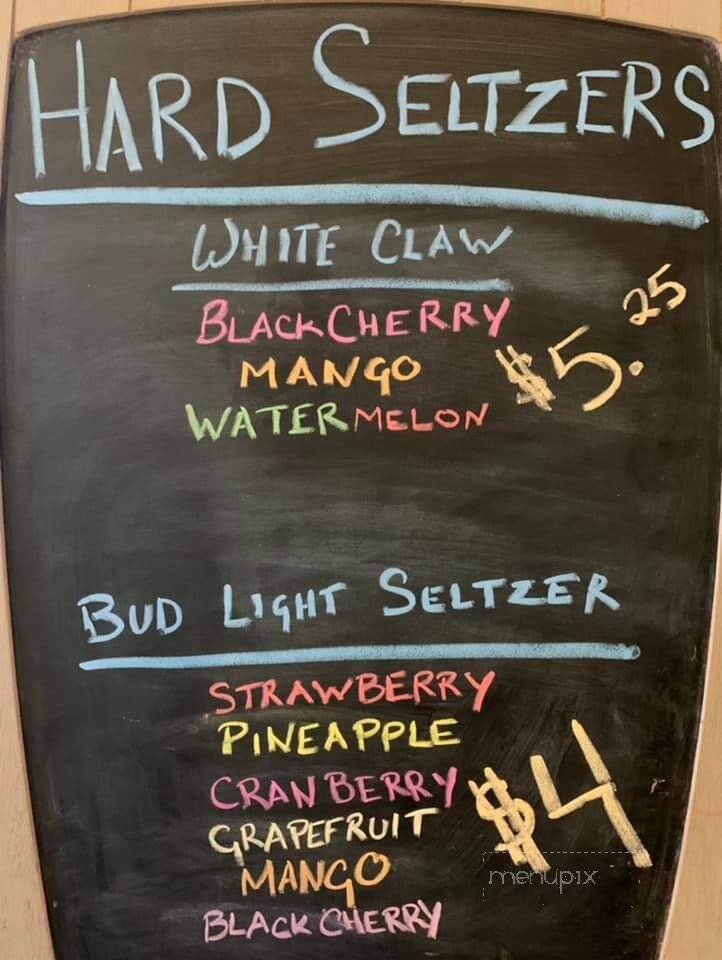 HARD SELTZERS
WHITE CLAW
BLACK CHERRY
MANGO
WATERMELON
$5.25
BUD LIGHT SELTZER
STRAWBERRY
PINEAPPLE
CRANBERRY
GRAPEFRUIT
MANGO
BLACK CHERRY
$4
menupix